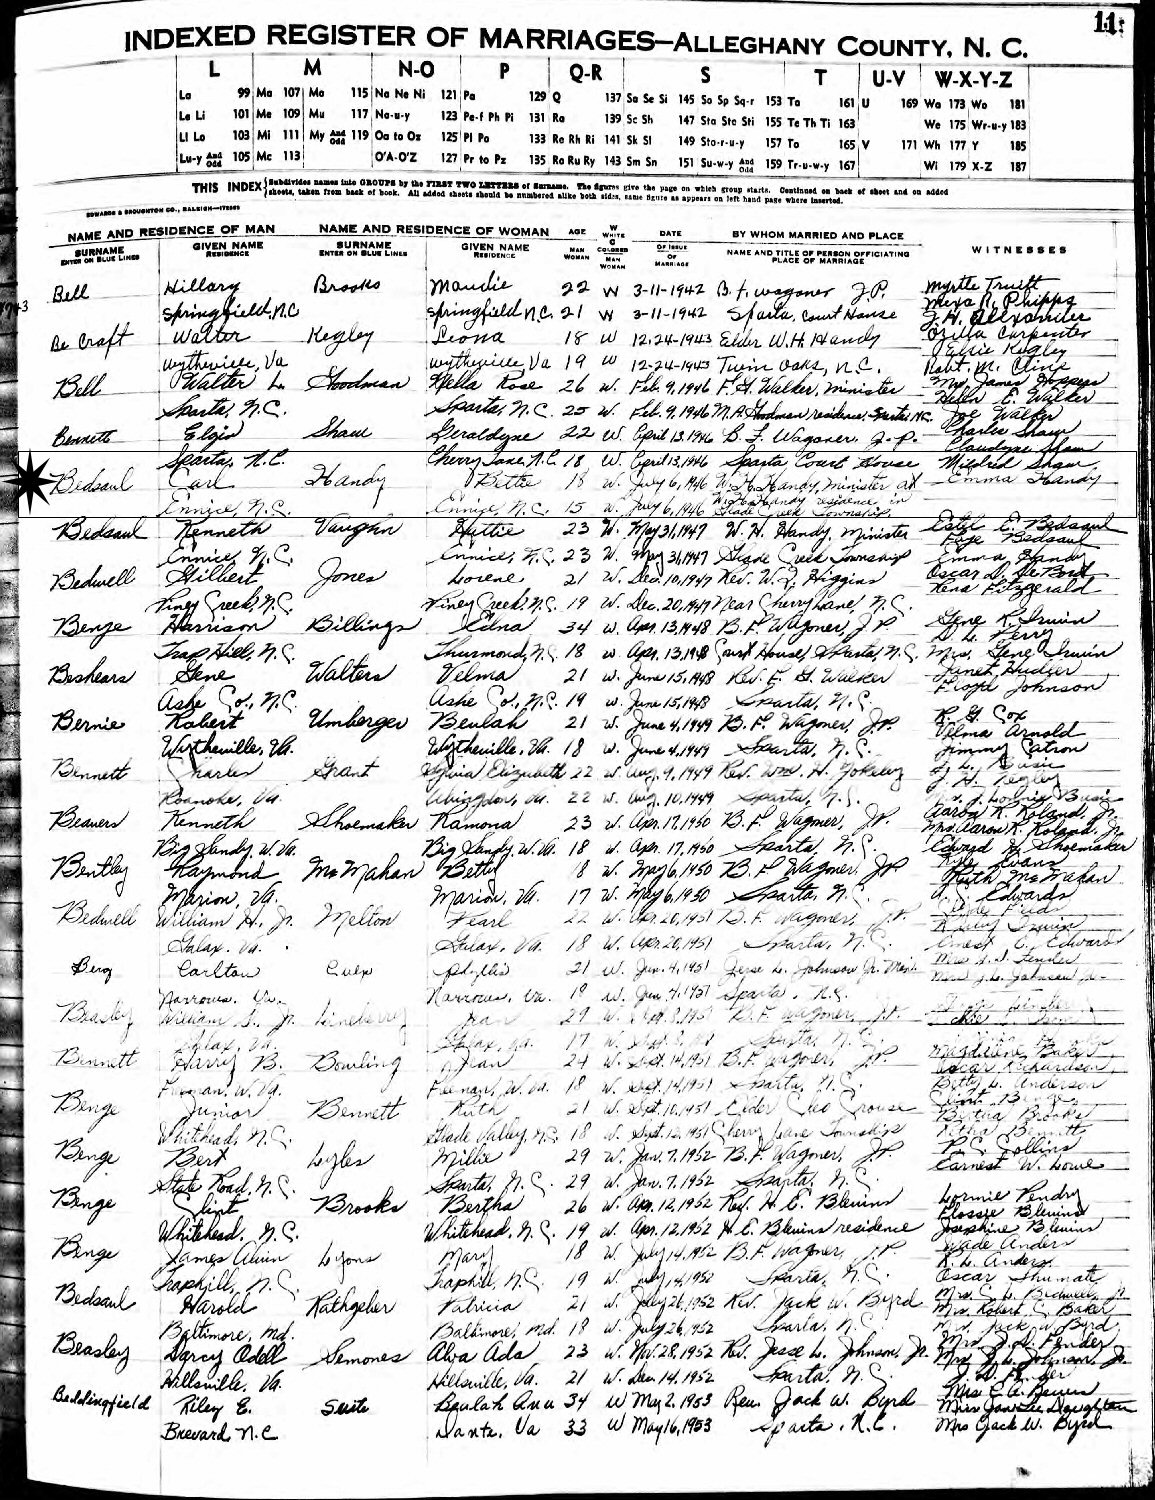 11
INDEXED REGISTER OF MARRIAGES—ALLEGHANY COUNTY, N. C.
L M N-O P Q-R S T U-V W-X-Y-Z
La 99 Ma 107 Mo 115 Na Ne Ni 121 Pa 129 Q 137 Sa Se Si 145 So Sp Sq-r 153 Ta 161 U 169 Wa 173 Wo 181
Le Li 101 Me 109 Mu 117 No-u-y 123 Pe-f Ph Pi 131 Ra 139 Sc Sh 147 Sta Ste Sti 155 Te Th Ti 163 We 175 Wr-u-y 183
Ll Lo 103 Mi 111 My And Odd 119 Oa to Oz 125 Pl Po 133 Re Rh Ri 141 Sk Sl 149 Sto-r-u-y 157 To 165 V 171 Wh 177 Y 185
Lu-y And Odd 105 Mc 113 O'A-O'Z 127 Pr to Pz 135 Ro Ru Ry 143 Sm Sn 151 Su-w-y And Odd 159 Tr-u-w-y 167 Wi 179 X-Z 187
THIS INDEX Subdivides names into GROUPS by the FIRST TWO LETTERS of Surname. The figures give the page on which group starts. Continued on back of sheet and on added
sheets, taken from back of book. All added sheets should be numbered alike both sides, same figure as appears on left hand page where inserted.
EDWARDS & BROUGHTON CO., RALEIGH
NAME AND RESIDENCE OF MAN NAME AND RESIDENCE OF WOMAN AGE W WHITE C COLORED DATE BY WHOM MARRIED AND PLACE WITNESSES
SURNAME GIVEN NAME SURNAME GIVEN NAME MAN OF ISSUE NAME AND TITLE OF PERSON OFFICIATING
ENTER ON BLUE LINES RESIDENCE ENTER ON BLUE LINES RESIDENCE WOMAN MAN WOMAN OF MARRIAGE PLACE OF MARRIAGE
Bell Hillary Brooks Maudie 22 W 3-11-1942 B. F. Wagoner J.P. Myrtle Truitt
Springfield, N.C. Springfield N.C. 21 W 3-11-1942 Sparta, Court House Phipps
Be Craft Walter Kegley Leona 18 W 12-24-1943 Elder W. H. Handy Carpenter
Wytheville, Va Wytheville, Va 19 W 12-24-1943 Twin Oaks, N.C. Robt. M. Cline
Bell Walter L. Goodman Nella Rose 26 W. Feb. 9, 1946 F. G. Walker, minister Mrs. James
Sparta, N.C. Sparta, N.C. 25 W. Feb. 9, 1946 Goodman residence, Sparta, N.C. Joe Walker
Bennett Elgin Shaw Geraldyne 22 W. April 13, 1946 B. F. Wagoner, J.P. Charlie Shaw
Sparta, N.C. Cherry Lane, N.C. 18 W. April 13, 1946 Sparta, Court House Mildred Shaw
Bedsaul Carl Handy Bettie 18 W. July 6, 1946 W. H. Handy, minister at Emma Handy
Ennice, N.C. Ennice, N.C. 15 W. July 6, 1946 W. H. Handy residence in Glade Creek Township
Bedsaul Kenneth Vaughn Hettie 23 W. May 31, 1947 W. H. Handy, minister Estel E. Bedsaul
Ennice, N.C. Ennice, N.C. 23 W. May 31, 1947 Glade Creek Township Emma Handy
Bedwell Gilbert Jones Lorene 21 W. Dec. 10, 1947 Rev. W. F. Higgins Rena Fitzgerald
Piney Creek, N.C. Piney Creek, N.C. 19 W. Dec. 20, 1947 Near Cherry Lane, N.C.
Benge Harrison Billings Edna 34 W. Apr. 13, 1948 B. F. Wagoner, J.P. Gene R. Irwin
Trap Hill, N.C. Thurmond, N.C. 18 W. Apr. 13, 1948 Court House, Sparta, N.C. Mrs. Gene Irwin
Beshears Gene Walters Velma 21 W. June 15, 1948 Rev. F. G. Walker Floyd Johnson
Ashe Co., N.C. Ashe Co., N.C. 19 W. June 15, 1948 Sparta, N.C.
Bernie Robert Umberger Beulah 21 W. June 4, 1949 B. F. Wagoner, J.P. Velma Arnold
Wytheville, Va. Wytheville, Va. 18 W. June 4, 1949 Sparta, N.C. Jimmy Catron
Bennett Charles Grant Sylvia Elizabeth 22 W. Aug. 9, 1949 Rev. Wm. H. Yokeley
Roanoke, Va. Abingdon, Va. 22 W. Aug. 10, 1949 Sparta, N.C.
Beavers Kenneth Shoemaker Ramona 23 W. Apr. 17, 1950 B. F. Wagoner, J.P. Aaron K. Roland, Jr.
Mrs. Aaron K. Roland, Jr.
Big Sandy, W. Va. Big Sandy, W. Va. 18 W. Apr. 17, 1950 Sparta, N.C. Shoemaker
Bentley Raymond McMahan Betty 18 W. May 6, 1950 B. F. Wagoner, J.P. Ruth McMahan
Marion, Va. Marion, Va. 17 W. May 6, 1950 Sparta, N.C. Edwards
Bedwell William H., Jr. Melton Pearl 22 W. Apr. 20, 1951 B. F. Wagoner, J.P.
Galax, Va. Galax, Va. 18 W. Apr. 20, 1951 Sparta, N.C. Ernest C. Edwards
Berg Carlton Phyllis 21 W. Jun. 4, 1951 Jesse L. Johnson Jr. Mrs. J. L. Johnson Jr.
Narrows, Va. Narrows, Va. 18 W. Jun. 4, 1951 Sparta, N.C.
Beasley William S., Jr. Lineberry Jean 29 W. B. F. Wagoner, J.P.
Galax, Va. Galax, Va. 17 W. Sparta, N.C.
Bennett Harry B. Bowling Jean 24 W. Sept. 14, 1951 B. F. Wagoner, J.P. Oscar Richardson
W. Va. W. Va. 18 W. Sept. 14, 1951 Sparta, N.C. Betty L. Anderson
Benge Junior Bennett Ruth 21 W. Sept. 10, 1951 Elder Cleo Crouse Bertha Brooks
Whitehead, N.C. Glade Valley, N.C. 18 W. Sept. 12, 1951 Cherry Lane Township Bennett
Benge Bert Lyles Millie 29 W. Jan. 7, 1952 B. F. Wagoner, J.P. Collins
State Road, N.C. Sparta, N.C. 29 W. Jan. 7, 1952 Sparta, N.C. Earnest W. Lowe
Benge Clint Brooks Bertha 26 W. Apr. 12, 1952 Rev. H. E. Blevins Lonnie Pendry
Flossie Blevins
Whitehead, N.C. Whitehead, N.C. 19 W. Apr. 12, 1952 H. E. Blevins residence Josephine Blevins
Benge James Alvin Lyons Mary 18 W. July 14, 1952 B. F. Wagoner, J.P. Wade Anders
Traphill, N.C. Traphill, N.C. 19 W. July 14, 1952 Sparta, N.C. Oscar Shumate
Bedsaul Harold Rathgeber Patricia 21 W. July 26, 1952 Rev. Jack W. Byrd Mrs. Robert C. Baker
Baltimore, Md. Baltimore, Md. 18 W. July 26, 1952 Sparta, N.C. Mrs. Jack W. Byrd
Beasley Darcy Odell Semones Alva Ada 23 W. Nov. 28, 1952 Rev. Jesse L. Johnson, Jr. Mrs. J. L. Johnson, Jr.
Hillsville, Va. Hillsville, Va. 21 W. Dec. 14, 1952 Sparta, N.C.
Beddingfield Riley E. Suits Beulah Ann 34 W May 2, 1953 Rev. Jack W. Byrd
Brevard, N.C. Va 33 W May 16, 1953 Sparta, N.C. Mrs Jack W. Byrd